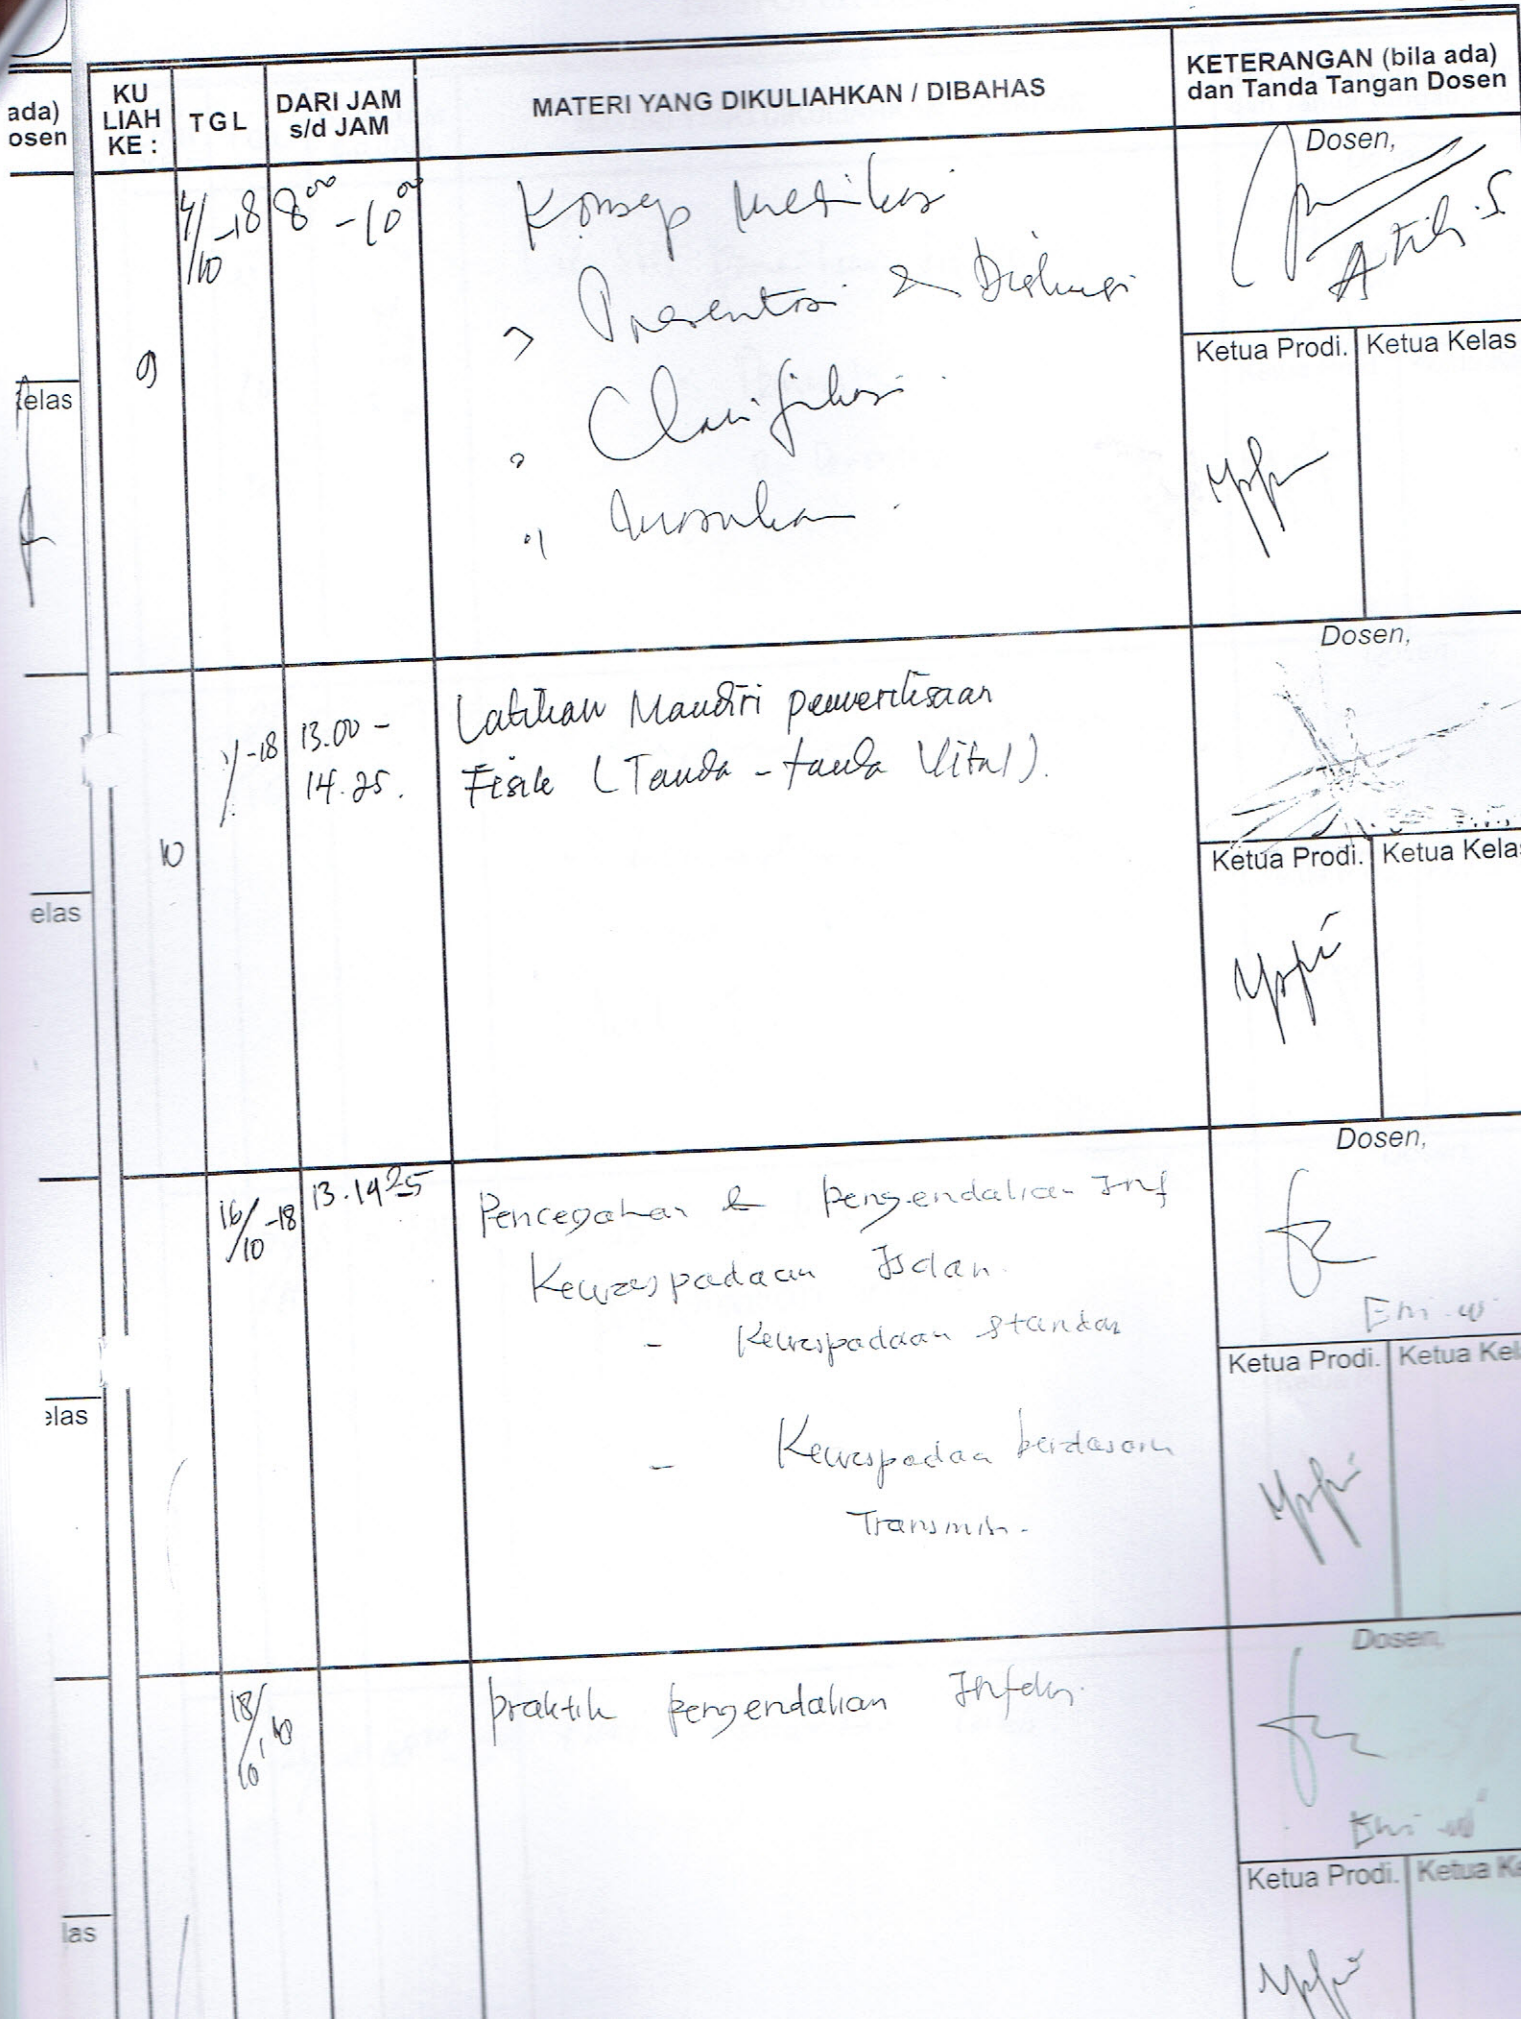 ada)
osen
KU
LIAH
KE :
TGL
DARI JAM
s/d JAM
MATERI YANG DIKULIAHKAN / DIBAHAS
KETERANGAN (bila ada)
dan Tanda Tangan Dosen
9
4/10 -18
8⁰⁰ - 10⁰⁰
Konsep
Presentasi & Diskusi
Clarifikasi
Masukan
Dosen,
Ketua Prodi.
Ketua Kelas
elas
10
-18
13.00 -
14.25.
Latihan Mandiri pemeriksaan
Fisik (Tanda - tanda Vital).
Dosen,
Ketua Prodi.
Ketua Kelas
elas
16/10 -18
13.14 25
Pencegahan & pengendalian Inf
Kewaspadaan Isolan.
- Kewaspadaan standar
- Kewaspadaa berdasarn
Transmisi.
Dosen,
Eni .w
Ketua Prodi.
Ketua Kel
elas
18/10
praktik pengendalian Infeksi.
Dosen,
Eni .w
Ketua Prodi.
Ketua Ke
las